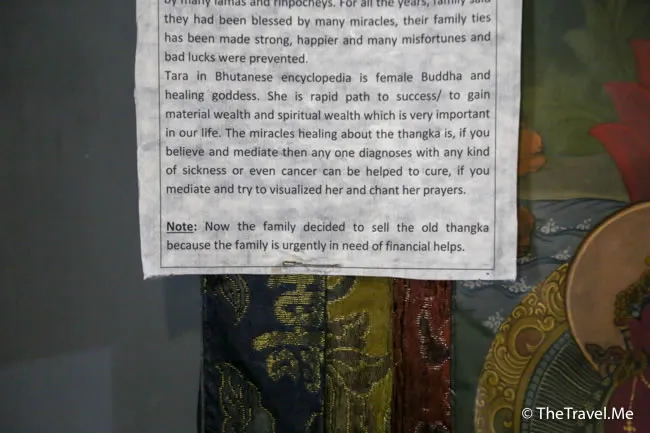 by many lamas and rinpocheys. For all the years, family said
they had been blessed by many miracles, their family ties
has been made strong, happier and many misfortunes and
bad lucks were prevented.
Tara in Bhutanese encyclopedia is female Buddha and
healing goddess. She is rapid path to success/ to gain
material wealth and spiritual wealth which is very important
in our life. The miracles healing about the thangka is, if you
believe and mediate then any one diagnoses with any kind
of sickness or even cancer can be helped to cure, if you
mediate and try to visualized her and chant her prayers.
Note: Now the family decided to sell the old thangka
because the family is urgently in need of financial helps.
© TheTravel.Me